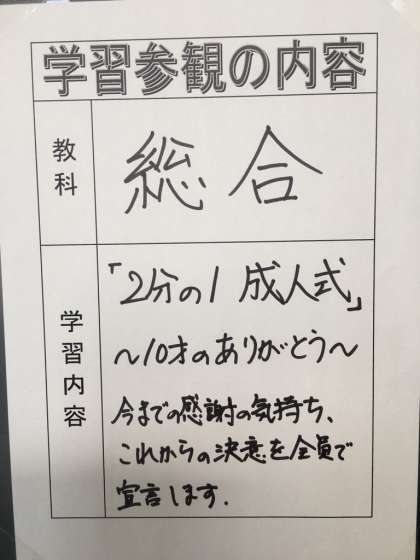 学習参観の内容
教科
総合
学習内容
「2分の1 成人式」
～10才のありがとう～
今までの感謝の気持ち、
これからの決意を全員で
宣言します.